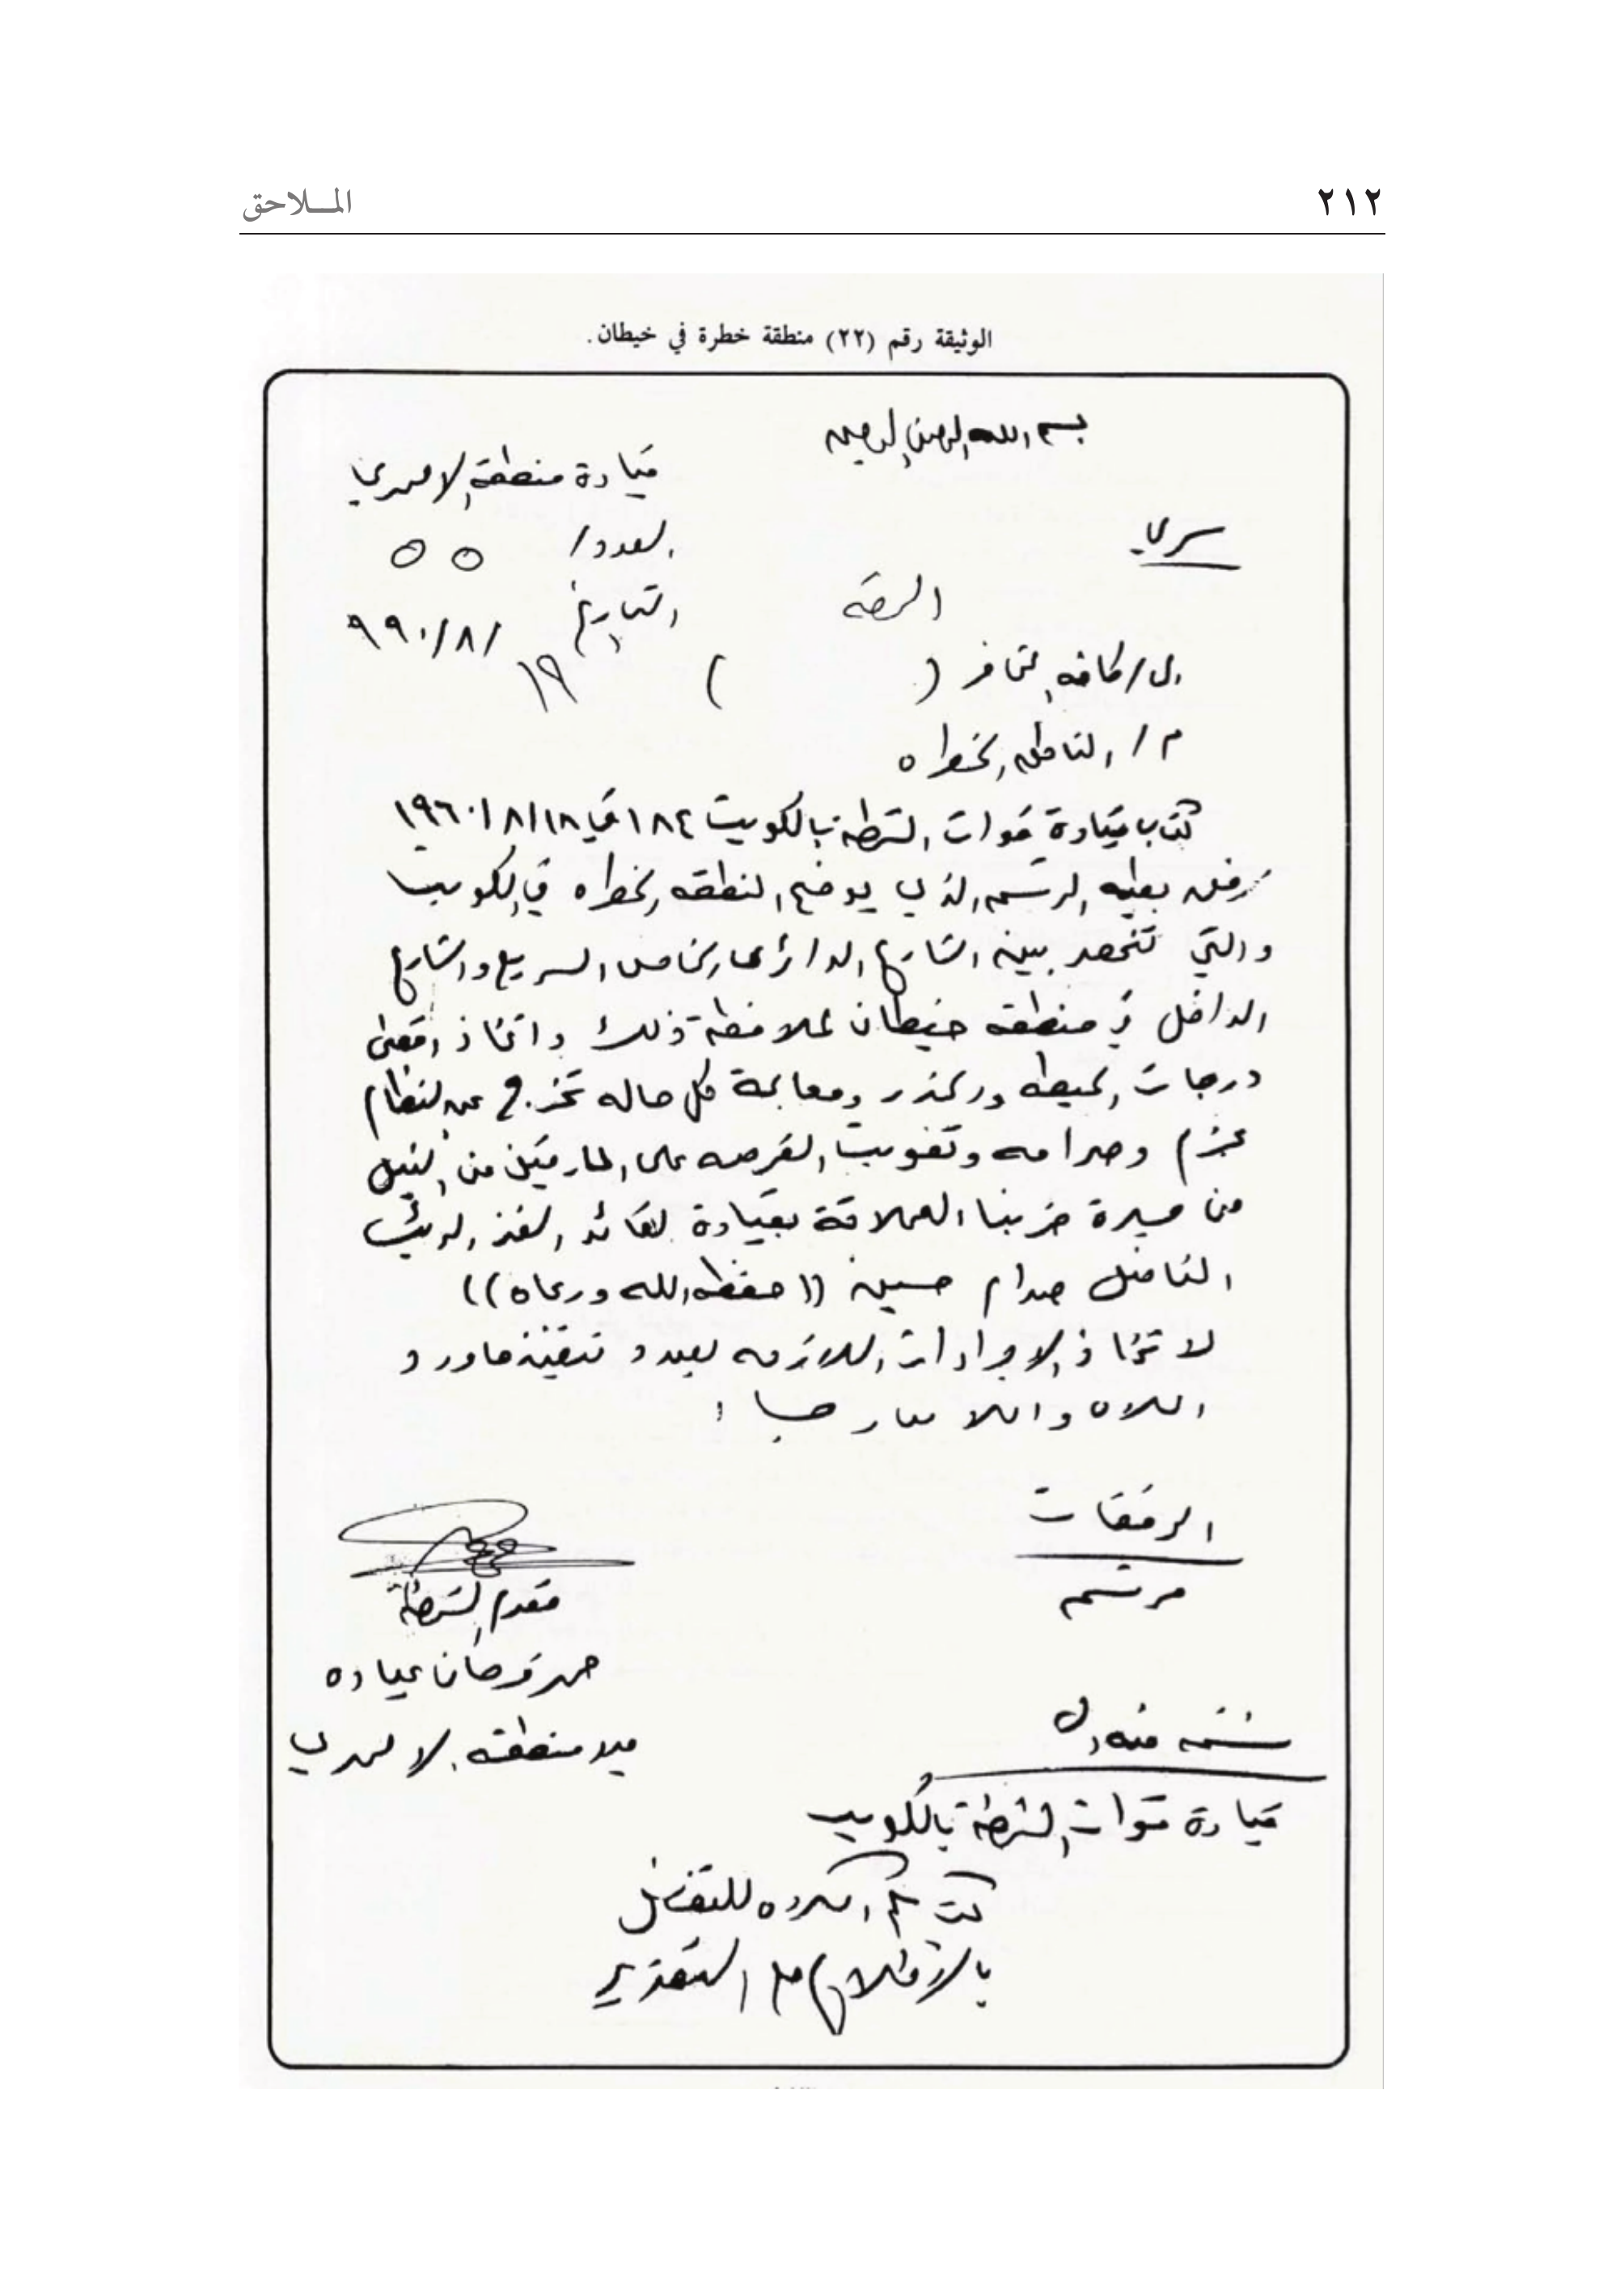 ٢١٢
الملاحق
الوثيقة رقم (٢٢) منطقة خطرة في خيطان.
بسم الله الرحمن الرحيم
قيادة منطقة الاحمدي
سري
العدد / ٥٥
التاريخ / ٨ / ٩٩٠
١٩
الى / كافة المخافر ( )
م / المناطق الخطرة
كتاب قيادة قوات الشرطة بالكويت ١٨٤ في ١٨ / ٨ / ١٩٩٠
نرفق بطيه المرتسم الذي يوضح المنطقه الخطره في الكويت
والتي تنحصر بين الشارع الدائري الخامس السريع والشارع
الداخل في منطقه خيطان لملاحظة ذلك واتخاذ اقصى
درجات الحيطه والحذر ومعالجة كل حاله تخرج عن النظام
بحزم وصرامه وتفويت الفرصه على المارقين من النيل
من مسيرة حزبنا العملاقة بقيادة القائد الفذ الرئيس
المناضل صدام حسين ((حفظه الله ورعاه))
لاتخاذ الاجراءات اللازمه بصدد وتنفيذ ماورد
المرفقات
مرتسم
مقدم الشرطة
حمد فرحان عياده
مدير منطقه الاحمدي
نسخه منه الى
قيادة قوات الشرطة بالكويت
كتابكم اعلاه للتفضل
بالاطلاع مع التقدير